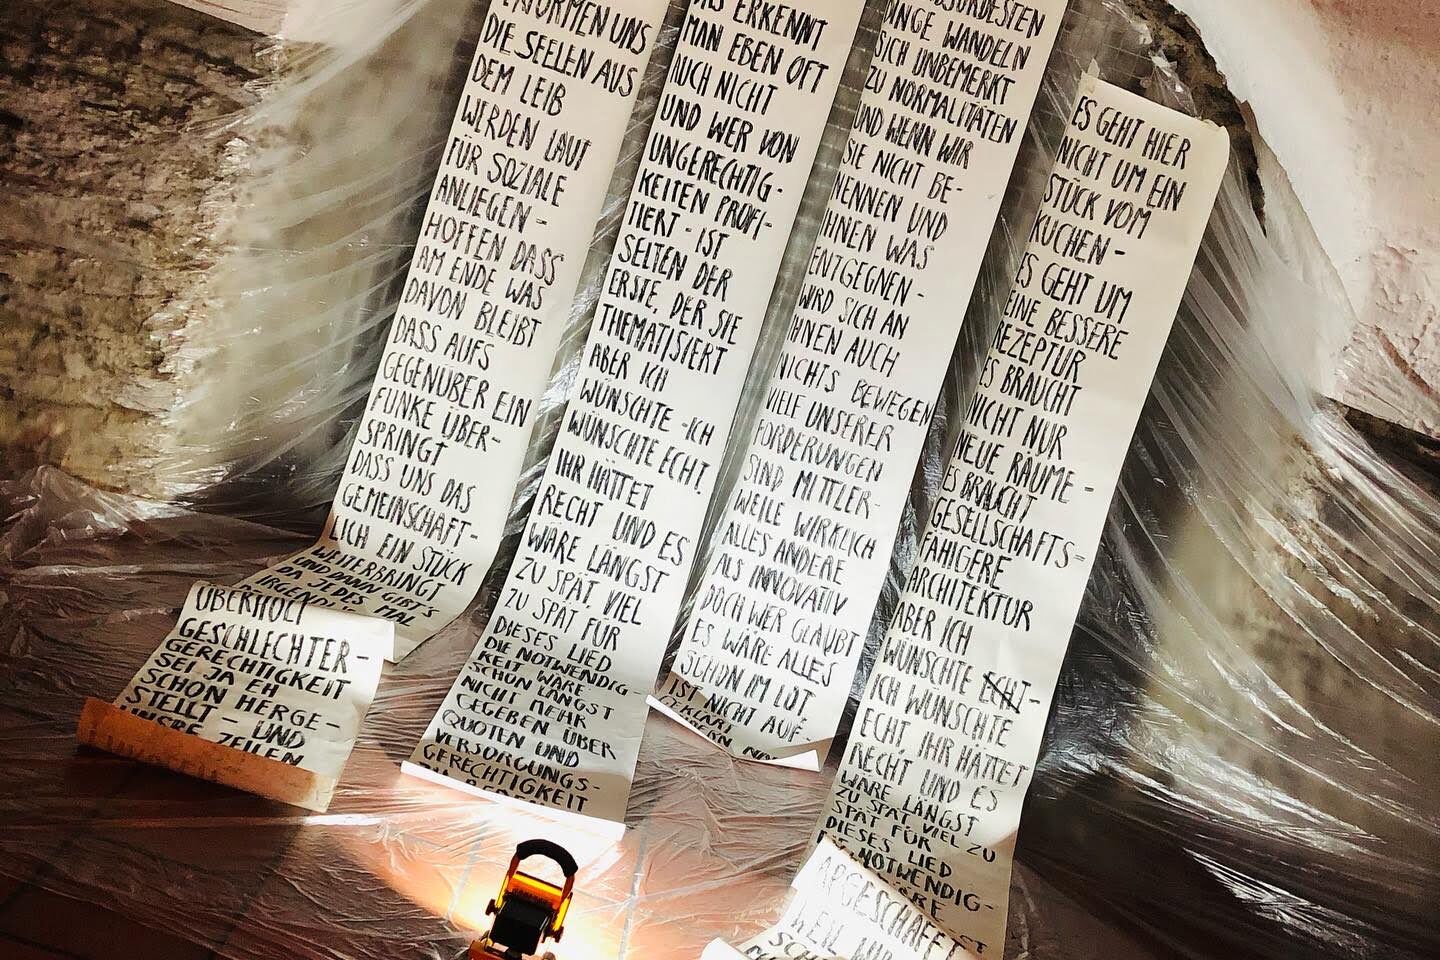 ERFORMEN UNS
DIE SEELEN AUS
DEM LEIB
WERDEN LAUT
FÜR SOZIALE
ANLIEGEN -
HOFFEN DASS
AM ENDE WAS
DAVON BLEIBT
DASS AUFS
GEGENÜBER EIN
FUNKE ÜBER-
SPRINGT
DASS UNS DAS
GEMEINSCHAFT-
LICH EIN STÜCK
WEITERBRINGT
UND DANN GIBT'S
DA JEDES MAL
ÜBERHOLT
GESCHLECHTER-
GERECHTIGKEIT
SEI JA EH
SCHON HERGE-
STELLT - UND
UNSRE ZEILEN
ERKENNT
MAN EBEN OFT
AUCH NICHT
UND WER VON
UNGERECHTIG-
KEITEN PROFI-
TIERT - IST
SELTEN DER
ERSTE, DER SIE
THEMATISIERT
ABER ICH
WÜNSCHTE - ICH
WÜNSCHTE ECHT,
IHR HÄTTET
RECHT UND ES
WÄRE LÄNGST
ZU SPÄT, VIEL
ZU SPÄT FÜR
DIESES LIED
DIE NOTWENDIG-
KEIT WÄRE
SCHON LÄNGST
NICHT MEHR
GEGEBEN ÜBER
QUOTEN UND
VERSORGUNGS-
GERECHTIGKEIT
ABSURDESTEN
DINGE WANDELN
SICH UNBEMERKT
ZU NORMALITÄTEN
UND WENN WIR
SIE NICHT BE-
NENNEN UND
IHNEN WAS
ENTGEGNEN -
WIRD SICH AN
IHNEN AUCH
NICHTS BEWEGEN
VIELE UNSERER
FORDERUNGEN
SIND MITTLER-
WEILE WIRKLICH
ALLES ANDERE
ALS INNOVATIV
DOCH WER GLAUBT
ES WÄRE ALLES
SCHON IM LOT,
IST NICHT AUF-
GEKLÄRT
ES GEHT HIER
NICHT UM EIN
STÜCK VOM
KUCHEN -
ES GEHT UM
EINE BESSERE
REZEPTUR
ES BRAUCHT
NICHT NUR
NEUE RÄUME -
ES BRAUCHT
GESELLSCHAFTS-
FÄHIGERE
ARCHITEKTUR
ABER ICH
WÜNSCHTE ECHT -
ICH WÜNSCHTE
ECHT IHR HÄTTET
RECHT UND ES
WÄRE LÄNGST
ZU SPÄT VIEL ZU
SPÄT FÜR
DIESES LIED
DIE NOTWENDIG-
ABGESCHAFFT
WEIL WIR